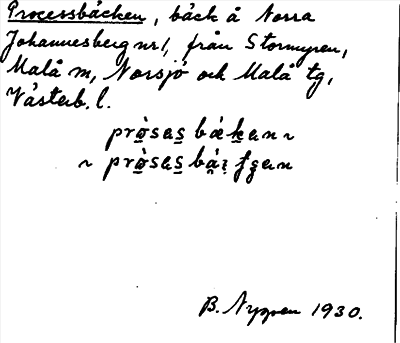 Processbäcken, bäck å Norra
Johannesberg nr 1, från Stormyren,
Malå m, Norsjö och Malå tg,
Västerb. l.
prò̱sas̱ bǽḵan ~
~ prò̱sas̱
B. Nygren 1930.